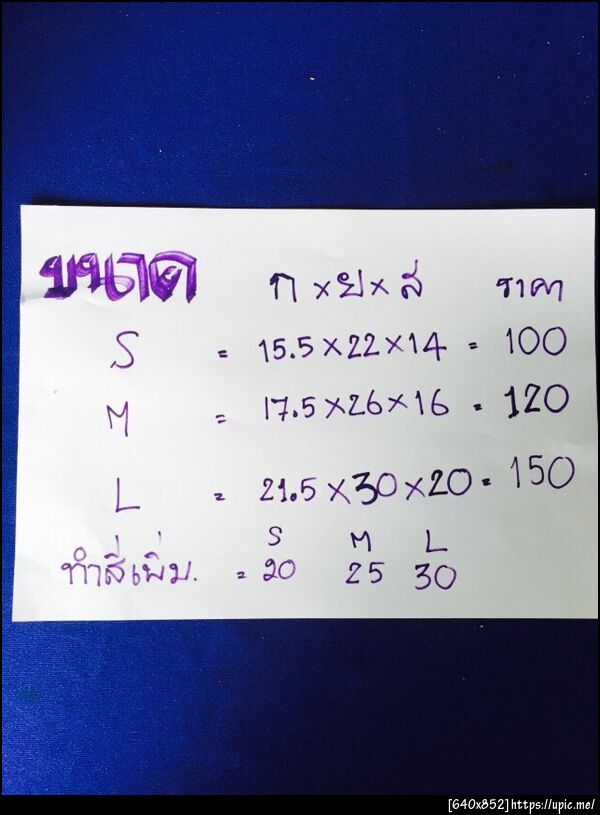 ขนาด ก x ย x ส ราคา
S = 15.5 x 22 x 14 = 100
M = 17.5 x 26 x 16 = 120
L = 21.5 x 30 x 20 = 150
S M L
ทำสี่เพิ่ม. = 20 25 30
[640x852]https://upic.me/